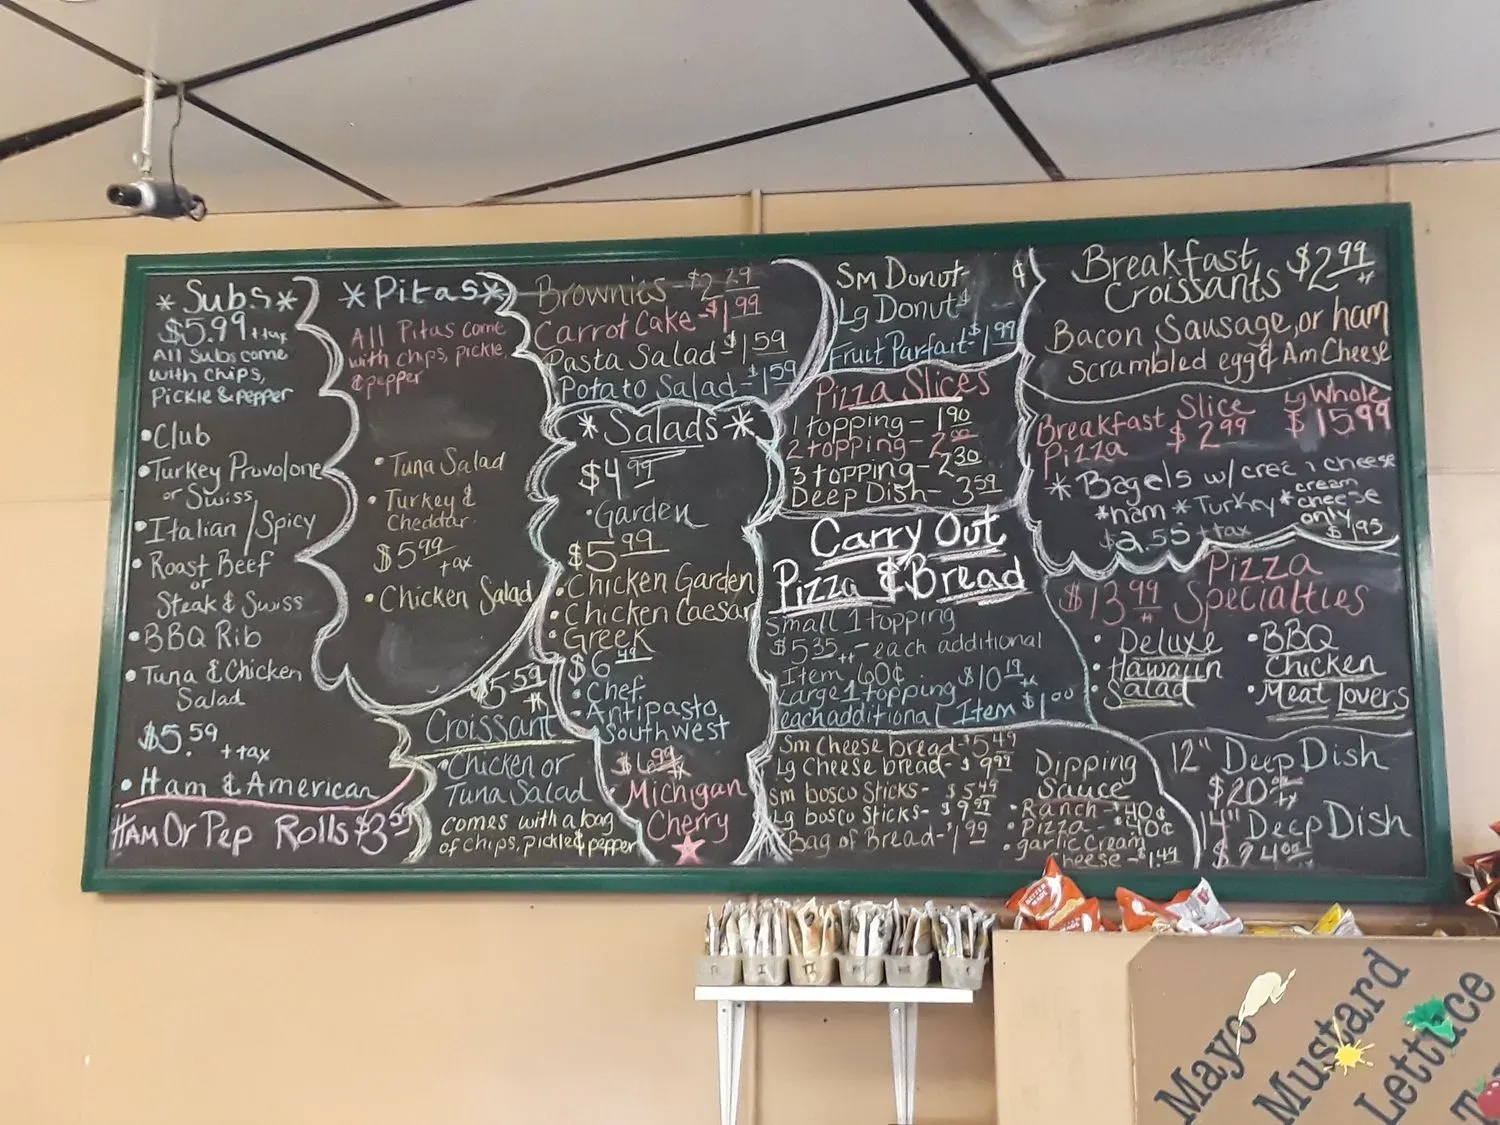 * Subs *
$5.99 + tax
All subs come
with chips,
Pickle & pepper
• Club
• Turkey Provolone
or Swiss
• Italian / Spicy
• Roast Beef
or
Steak & Swiss
• BBQ Rib
• Tuna & Chicken
Salad
$5.59 + tax
• Ham & American
Ham Or Pep Rolls $3.59
* Pitas *
All Pitas come
with chips, pickle,
& pepper
• Tuna Salad
• Turkey &
Cheddar
$5.99 + tax
• Chicken Salad
$5.59
Croissant
• Chicken or
Tuna Salad
comes with a bag
of chips, pickle & pepper
Brownies - $2.29
Carrot Cake - $1.99
Pasta Salad - $1.59
Potato Salad - $1.59
* Salads *
$4.99
• Garden
$5.99
• Chicken Garden
• Chicken Caesar
• Greek
$6.49
• Chef
• Antipasto
Southwest
$6.99
• Michigan
Cherry
Sm Donut ¢
Lg Donut
Fruit Parfait - $1.99
Pizza Slices
1 topping - 1.90
2 topping - 2.00
3 topping - 2.30
Deep Dish - 3.59
Carry Out
Pizza & Bread
Small 1 topping
$5.35 ++ - each additional
Item .60¢
Large 1 topping $10.19
each additional Item $1.00
Sm Cheese bread - $5.49
Lg Cheese bread - $9.99
Sm bosco Sticks - $5.49
Lg bosco Sticks - $9.99
Bag of Bread - $1.99
Dipping
Sauce
• Ranch - 40¢
• Pizza - 40¢
• garlic cream
cheese - $1.49
Breakfast
Croissants $2.99
Bacon, Sausage, or ham
scrambled egg & Am Cheese
Breakfast Slice Lg Whole
Pizza $2.99 $15.99
* Bagels w/ cream cheese
* ham * Turkey * cream
cheese
only
$2.55 + tax $1.95
Pizza
$13.99 Specialties
• Deluxe
• Hawaiin
• Salad
• BBQ
Chicken
• Meat Lovers
12" Deep Dish
$20.00
14" Deep Dish
$24.00
Mayo
Mustard
Lettuce